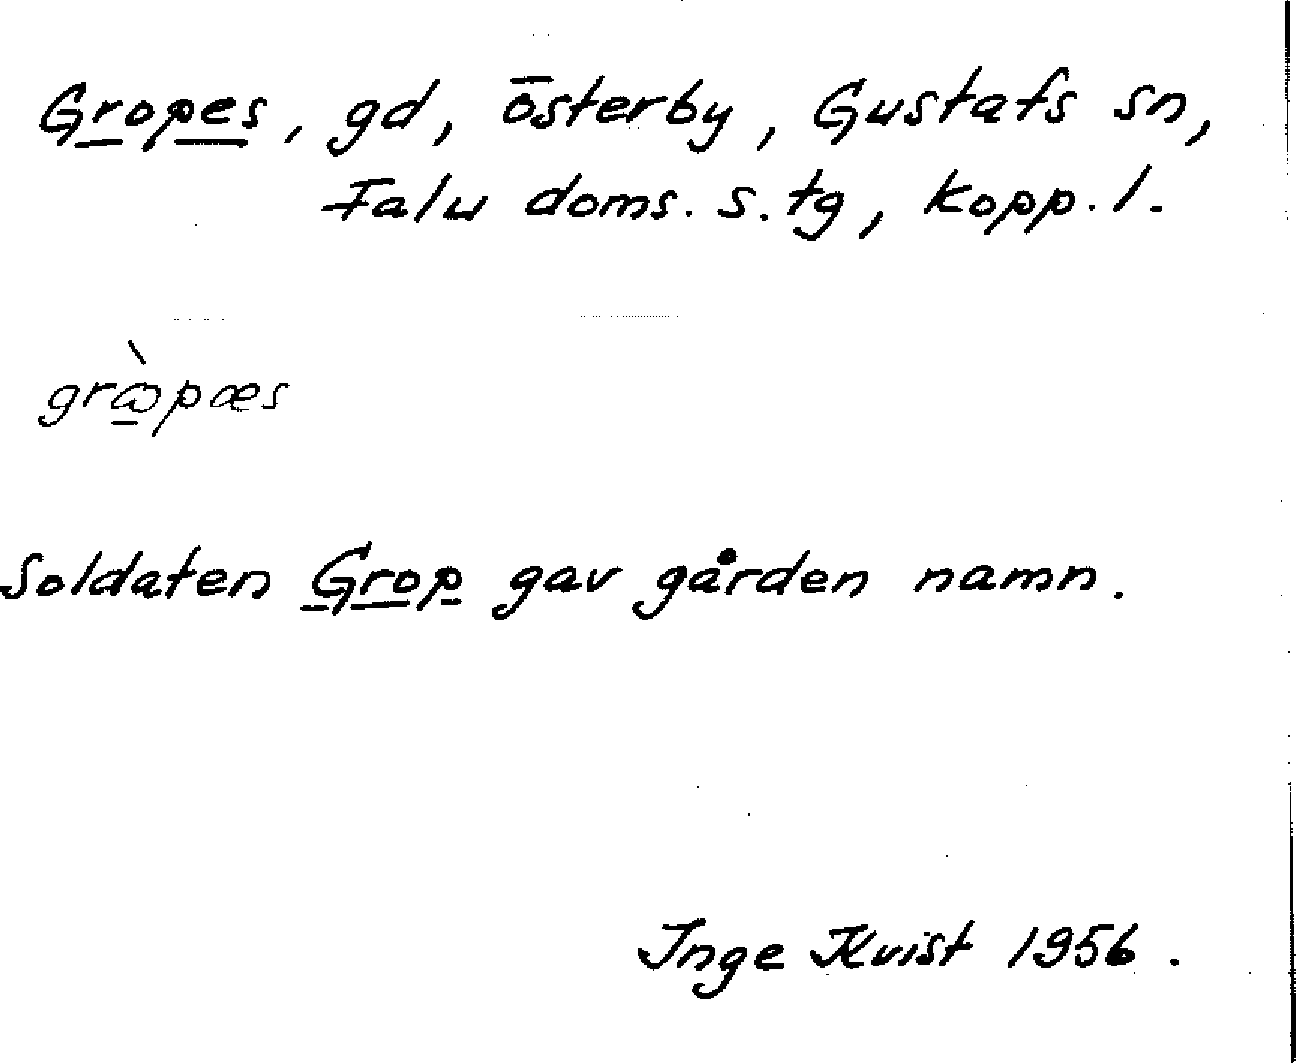 Gropes, gd, Österby, Gustafs sn,
Falu doms. s. tg, Kopp. l.
grɷ̀pæs
Soldaten Grop gav gården namn.
Inge Kvist 1956.